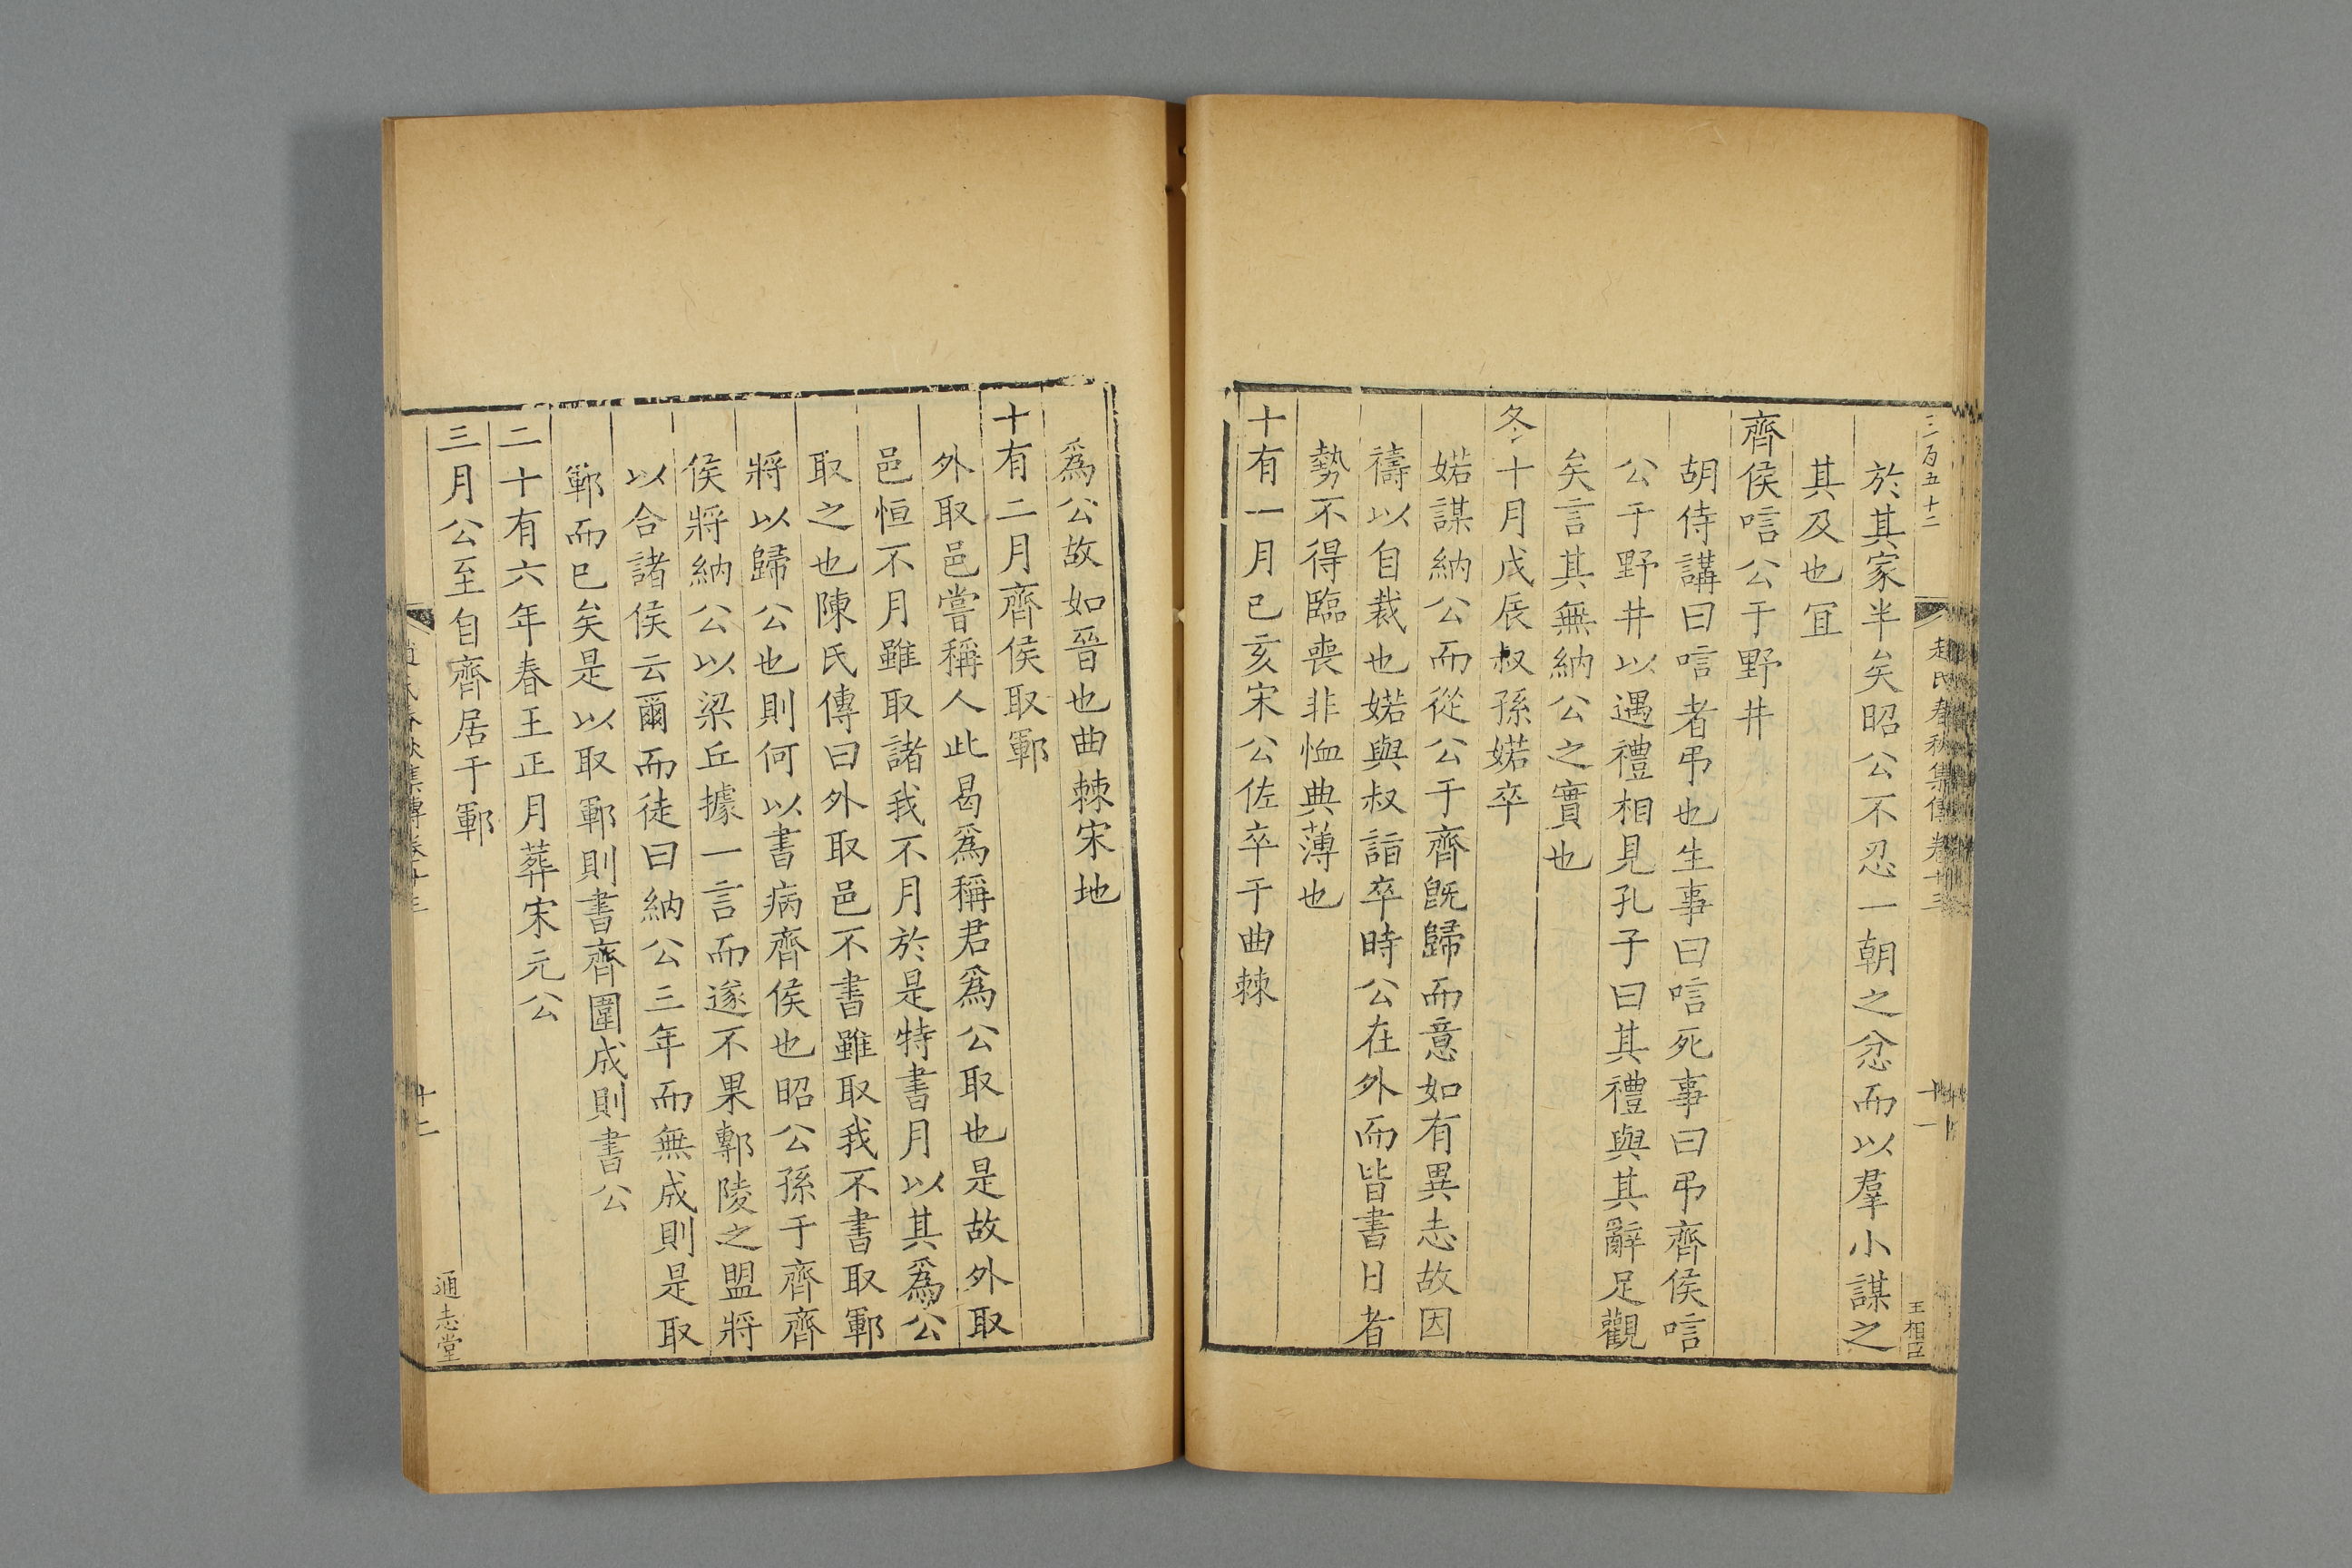 三百五十二
趙氏春秋集傳卷十三
十一
於其家半矣昭公不忍一朝之忿而以羣小謀之
其及也宜
齊侯唁公于野井
胡侍講曰唁者弔也生事曰唁死事曰弔齊侯唁
公于野井以遇禮相見孔子曰其禮與其辭足觀
矣言其無納公之實也
冬十月戊辰叔孫婼卒
婼謀納公而從公于齊旣歸而意如有異志故因
禱以自裁也婼與叔詣卒時公在外而皆書日者
勢不得臨喪非恤典薄也
十有一月已亥宋公佐卒于曲棘
爲公故如晉也曲棘宋地
十有二月齊侯取鄆
外取邑嘗稱人此曷爲稱君爲公取也是故外取
邑恒不月雖取諸我不月於是特書月以其爲公
取之也陳氏傳曰外取邑不書雖取我不書取鄆
將以歸公也則何以書病齊侯也昭公孫于齊齊
侯將納公以梁丘據一言而遂不果鄟陵之盟將
以合諸侯云爾而徒曰納公三年而無成則是取
鄆而已矣是以取鄆則書齊圍成則書公
二十有六年春王正月葬宋元公
三月公至自齊居于鄆
十二
通志堂